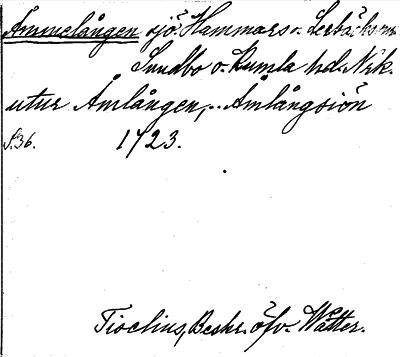 Ammelången sjö. Hammars o. Lerbäcks sn
Sundbo o. Kumla hd. Närk.
utur Åmlången, .. Åmlångsiön
S. 36. 1723.
Tiselius, Beskr. öfv. Wätter.